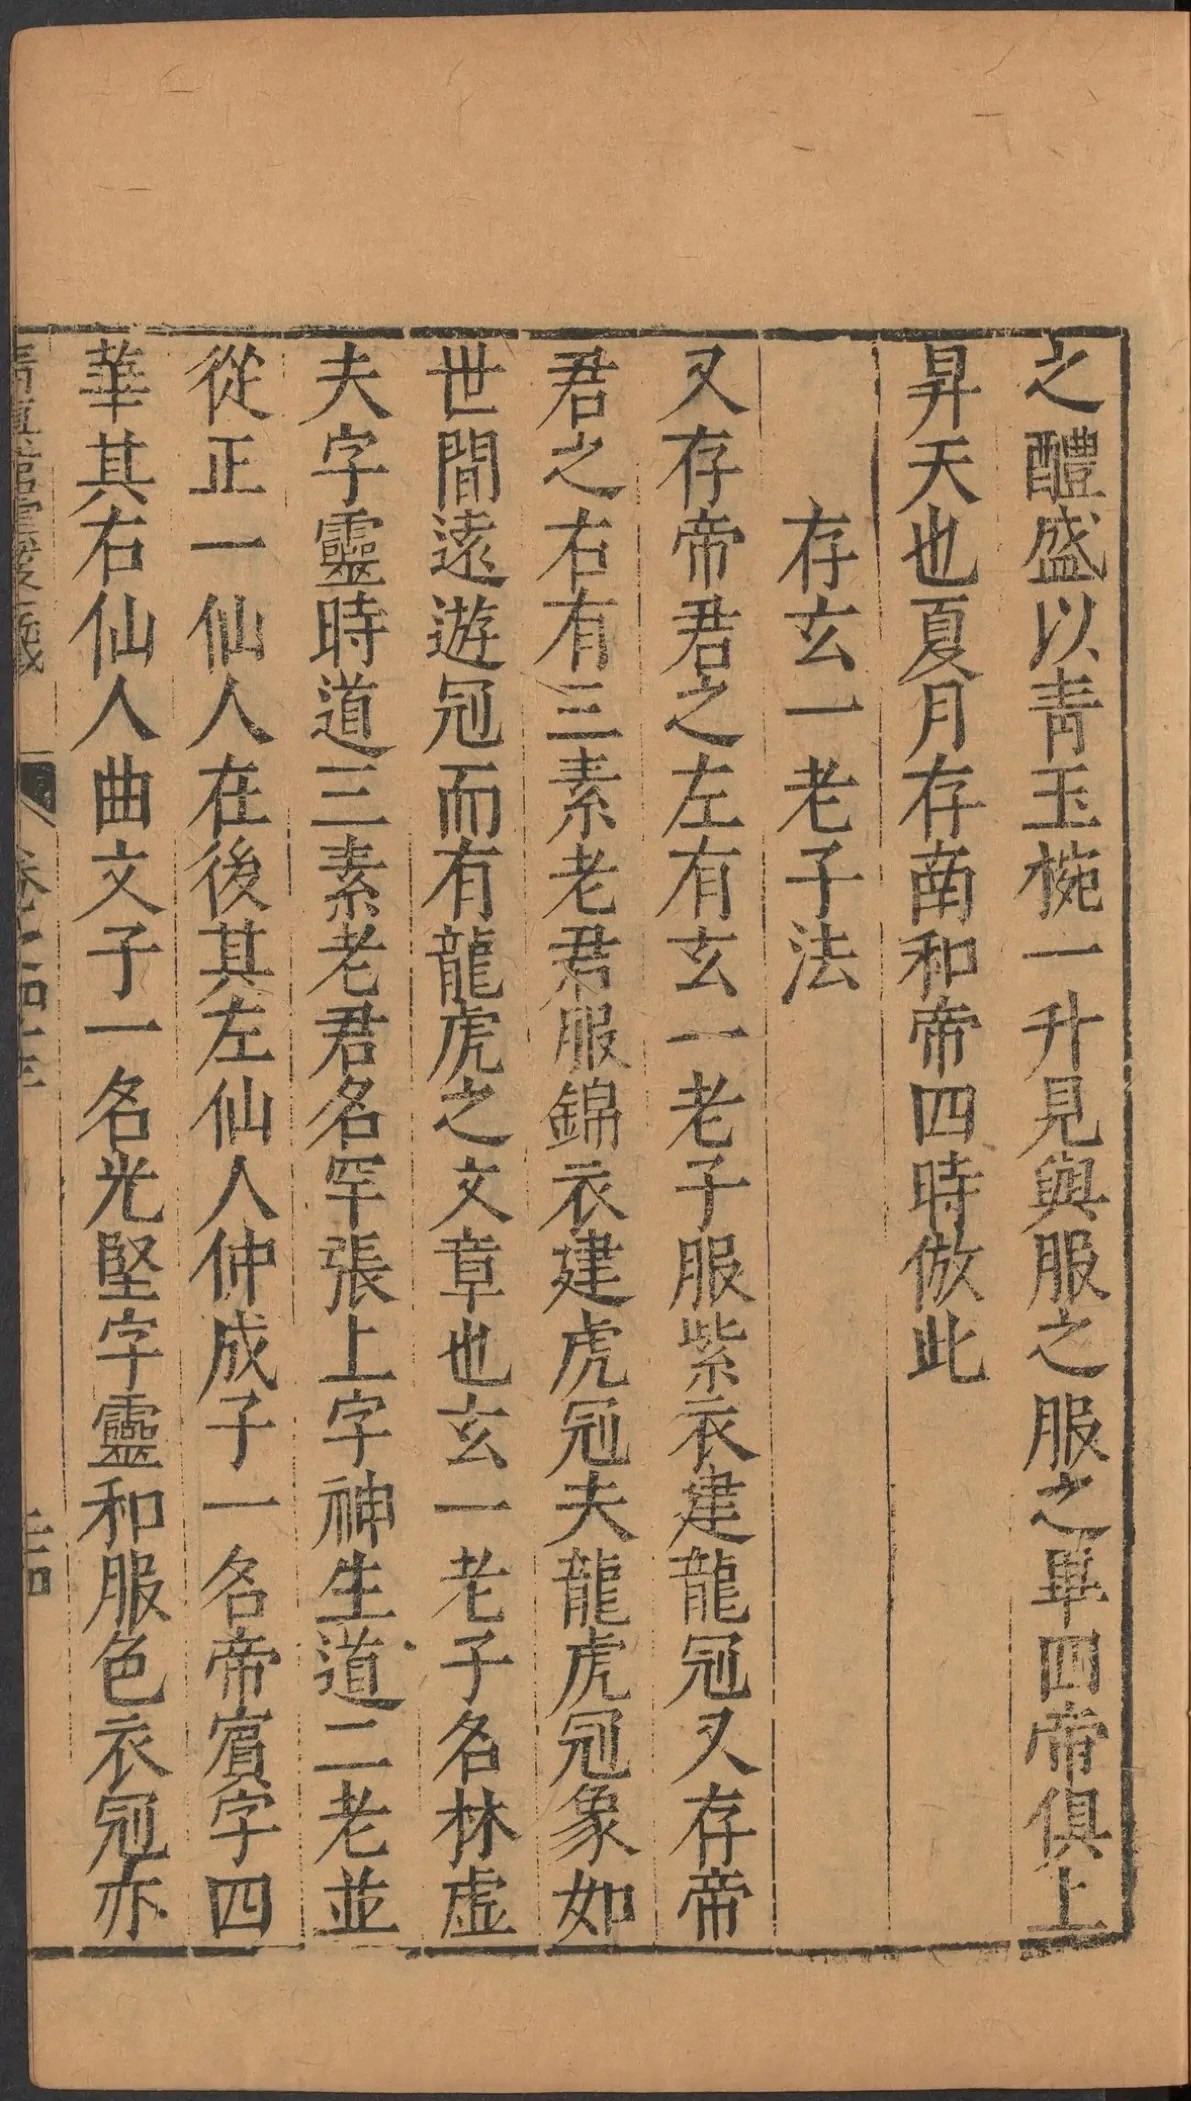 之醴盛以青玉椀一升見與服之服之畢四帝俱上
昇天也夏月存南和帝四時倣此
存玄一老子法
又存帝君之左有玄一老子服紫衣建龍冠又存帝
君之右有三素老君服錦衣建虎冠夫龍虎冠象如
世間遠遊冠而有龍虎之文章也玄一老子名林虛
夫字靈時道三素老君名罕張上字神生道二老並
從正一仙人在後其左仙人仲成子一名帝賓字四
華其右仙人曲文子一名光堅字靈和服色衣冠亦